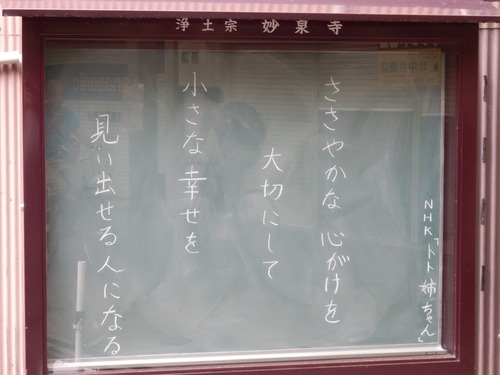 浄土宗 妙泉寺
NHK「トト姉ちゃん」
ささやかな 心がけを
大切にして
小さな幸せを
見い出せる人になる